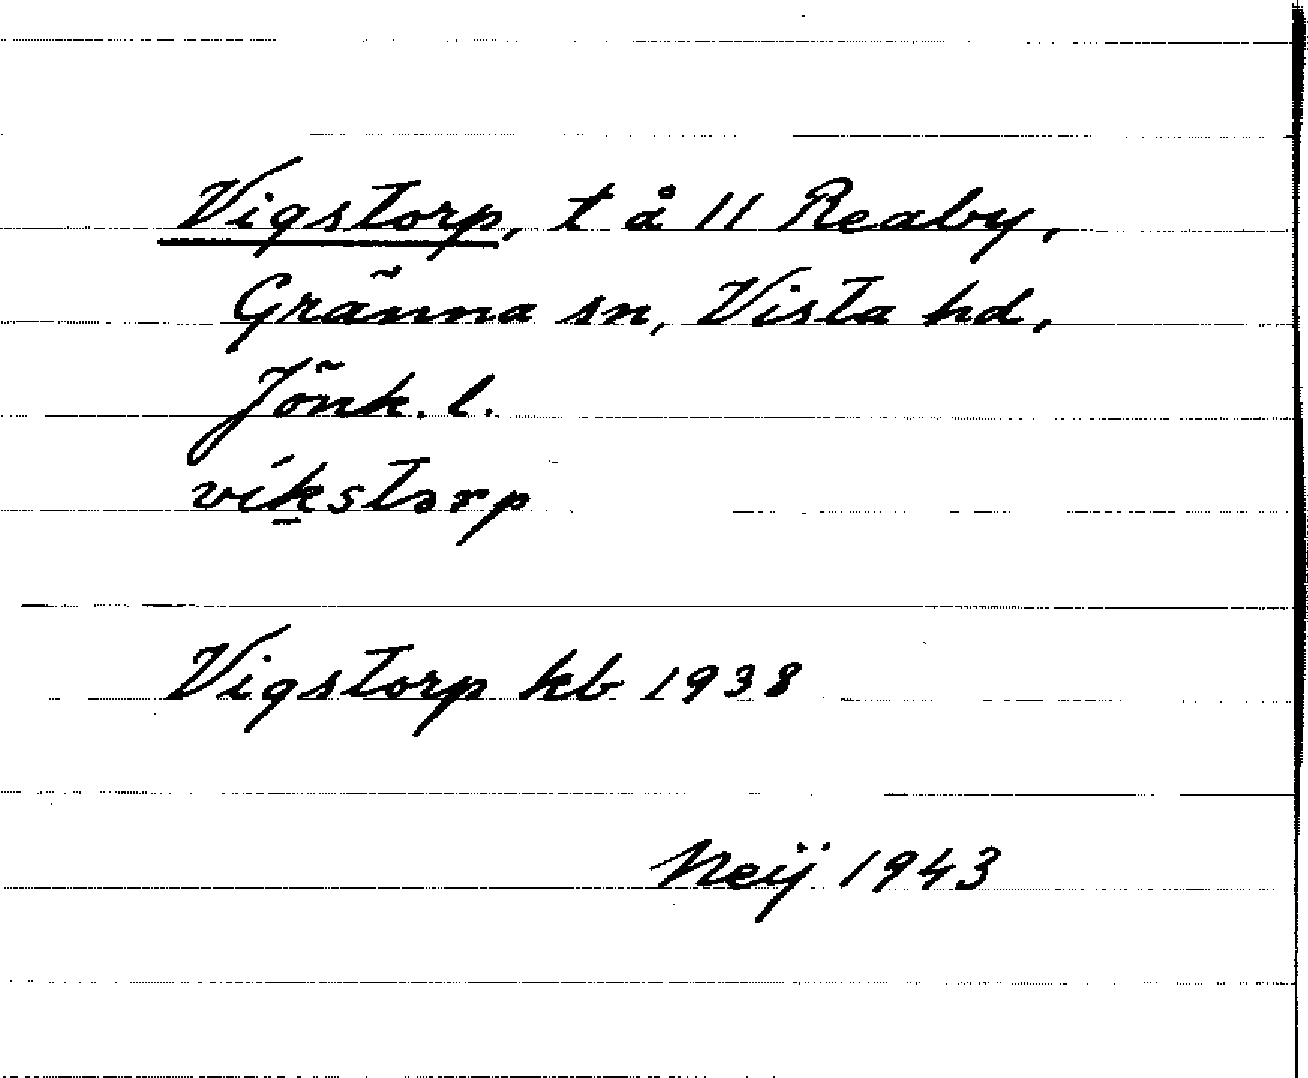 Vigstorp, t å 11 Reaby,
Gränna sn, Vista hd,
Jönk. l.
vík̠storp
Vigstorp kb 1938
Neij 1943